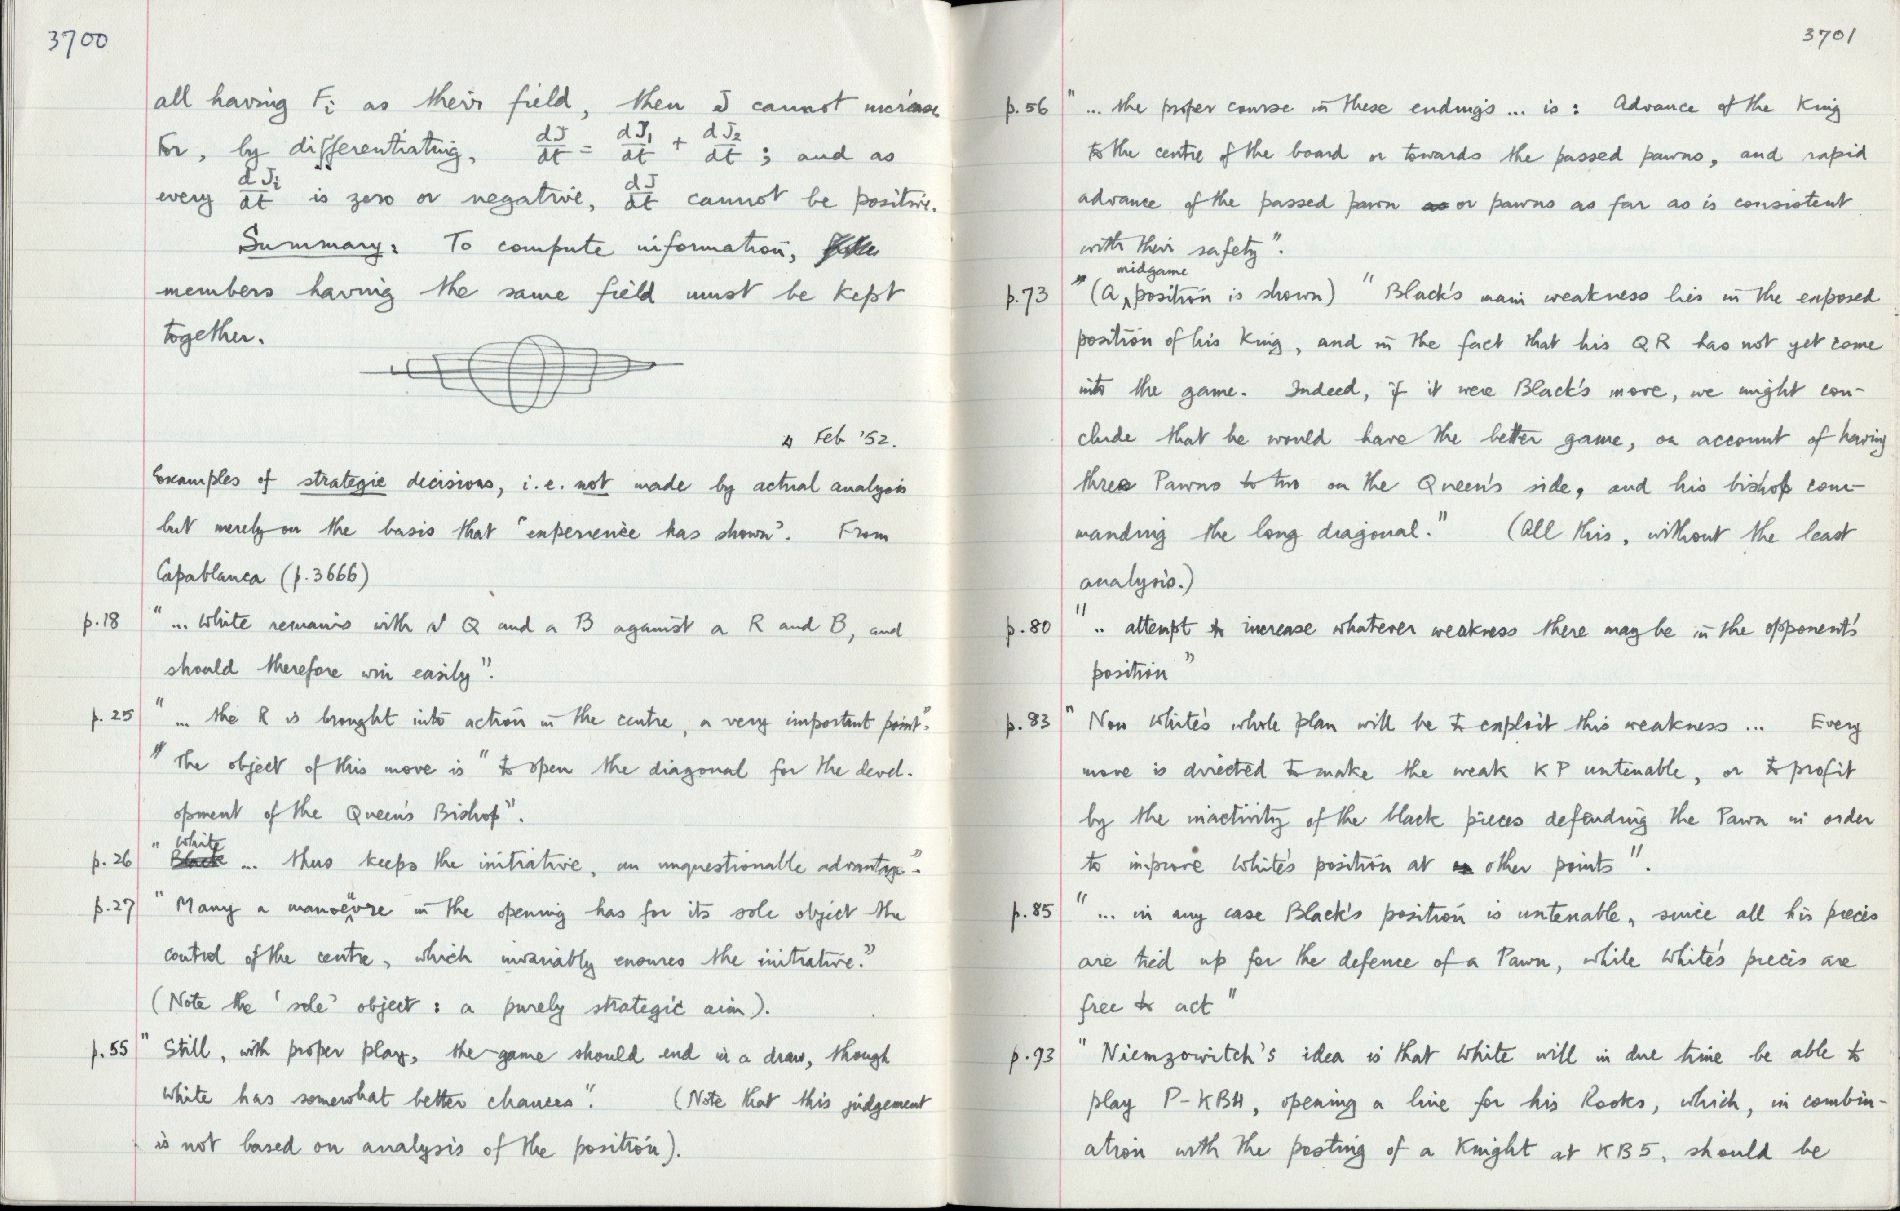 3700
all having Fi as their field, then J cannot increase.
For, by differentiating, dJ/dt = dJ1/dt + dJ2/dt ; and as
every dJi/dt is zero or negative, dJ/dt cannot be positive.
Summary: To compute information,
members having the same field must be kept
together.
4 Feb '52.
Examples of strategic decisions, i.e. not made by actual analysis
but merely on the basis that 'experience has shown'. From
Capablanca (p.3666)
p.18 "... White remains with Q and a B against a R and B, and
should therefore win easily".
p.25 "... the R is brought into action in the centre, a very important point".
"The object of this move is "to open the diagonal for the devel-
opment of the Queen's Bishop".
p.26 "White ... thus keeps the initiative, an unquestionable advantage".
p.27 "Many a manoeuvre in the opening has for its sole object the
control of the centre, which invariably ensures the initiative."
(Note the 'sole' object : a purely strategic aim).
p.55 "Still, with proper play, the game should end in a draw, though
White has somewhat better chances". (Note that this judgement
is not based on analysis of the position).
3701
p.56 "... the proper course in these endings ... is : Advance of the King
to the centre of the board or towards the passed pawns, and rapid
advance of the passed pawn or pawns as far as is consistent
with their safety".
p.73 "(A midgame position is shown) "Black's main weakness lies in the exposed
position of his King, and in the fact that his QR has not yet come
into the game. Indeed, if it were Black's move, we might con-
clude that he would have the better game, on account of having
three Pawns to two on the Queen's side, and his bishop com-
manding the long diagonal." (All this, without the least
analysis.)
p.80 ".. attempt to increase whatever weakness there may be in the opponent's
position"
p.83 "Now White's whole plan will be to exploit this weakness ... Every
move is directed to make the weak KP untenable, or to profit
by the inactivity of the black pieces defending the Pawn in order
to improve White's position at other points".
p.85 "... in any case Black's position is untenable, since all his pieces
are tied up for the defence of a Pawn, while White's pieces are
free to act"
p.93 "Niemzowitch's idea is that White will in due time be able to
play P-KB4, opening a line for his Rooks, which, in combin-
ation with the posting of a Knight at KB5, should be